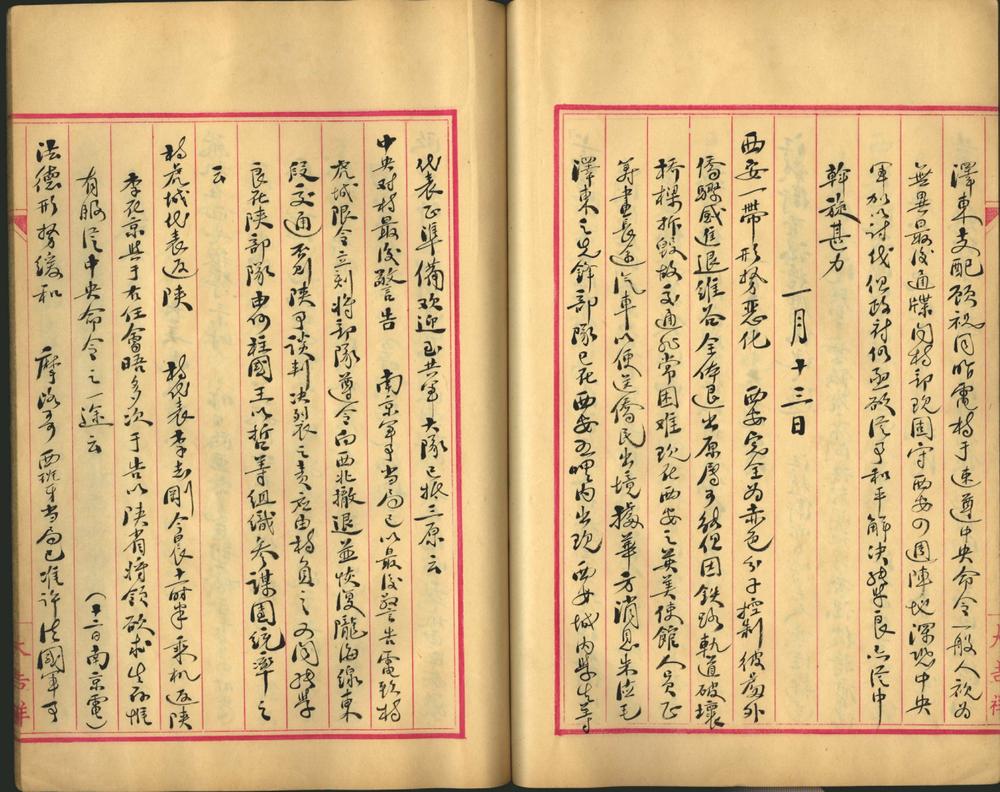 澤東支配顧祝同昨電楊于速遵中央命令一般人視為
無異最後通牒閻楊部現固守西安四週陣地深恐中央
軍加以討伐但政府仍亟欲從事和平解決張學良亦從中
斡旋甚力
一月十三日
西安一帶形勢惡化 西安完全為赤色分子控制彼處外
僑驟感進退維谷全体退出原屬可能但因鉄路軌道破壞
橋樑拆毀故交通非常困难現在西安之英美使館人員正
籌畫長途汽車以便送僑民出境據華方消息朱德毛
澤東之先鋒部隊已在西安五哩內出現西安城內學生等
代表正準備欢迎至共軍大隊已抵三原云
中央对楊最後警告 南京軍事当局已以最後警告電致楊
虎城限令立刻將部隊遵令向西北撤退並恢復隴海線東
段交通否則陝事談判决裂之責应由楊負之又聞張學
良在陝部隊由何柱國王以哲等組織参謀團統率之
云
楊虎城代表返陝 楊代表李志剛今晨十一時半乘机返陝
李在京與于右任會晤多次于告以陝省將領欲求生存惟
有服從中央命令之一途云 （十二日南京電）
法德形勢缓和 摩洛哥西班牙当局已准許法國軍事